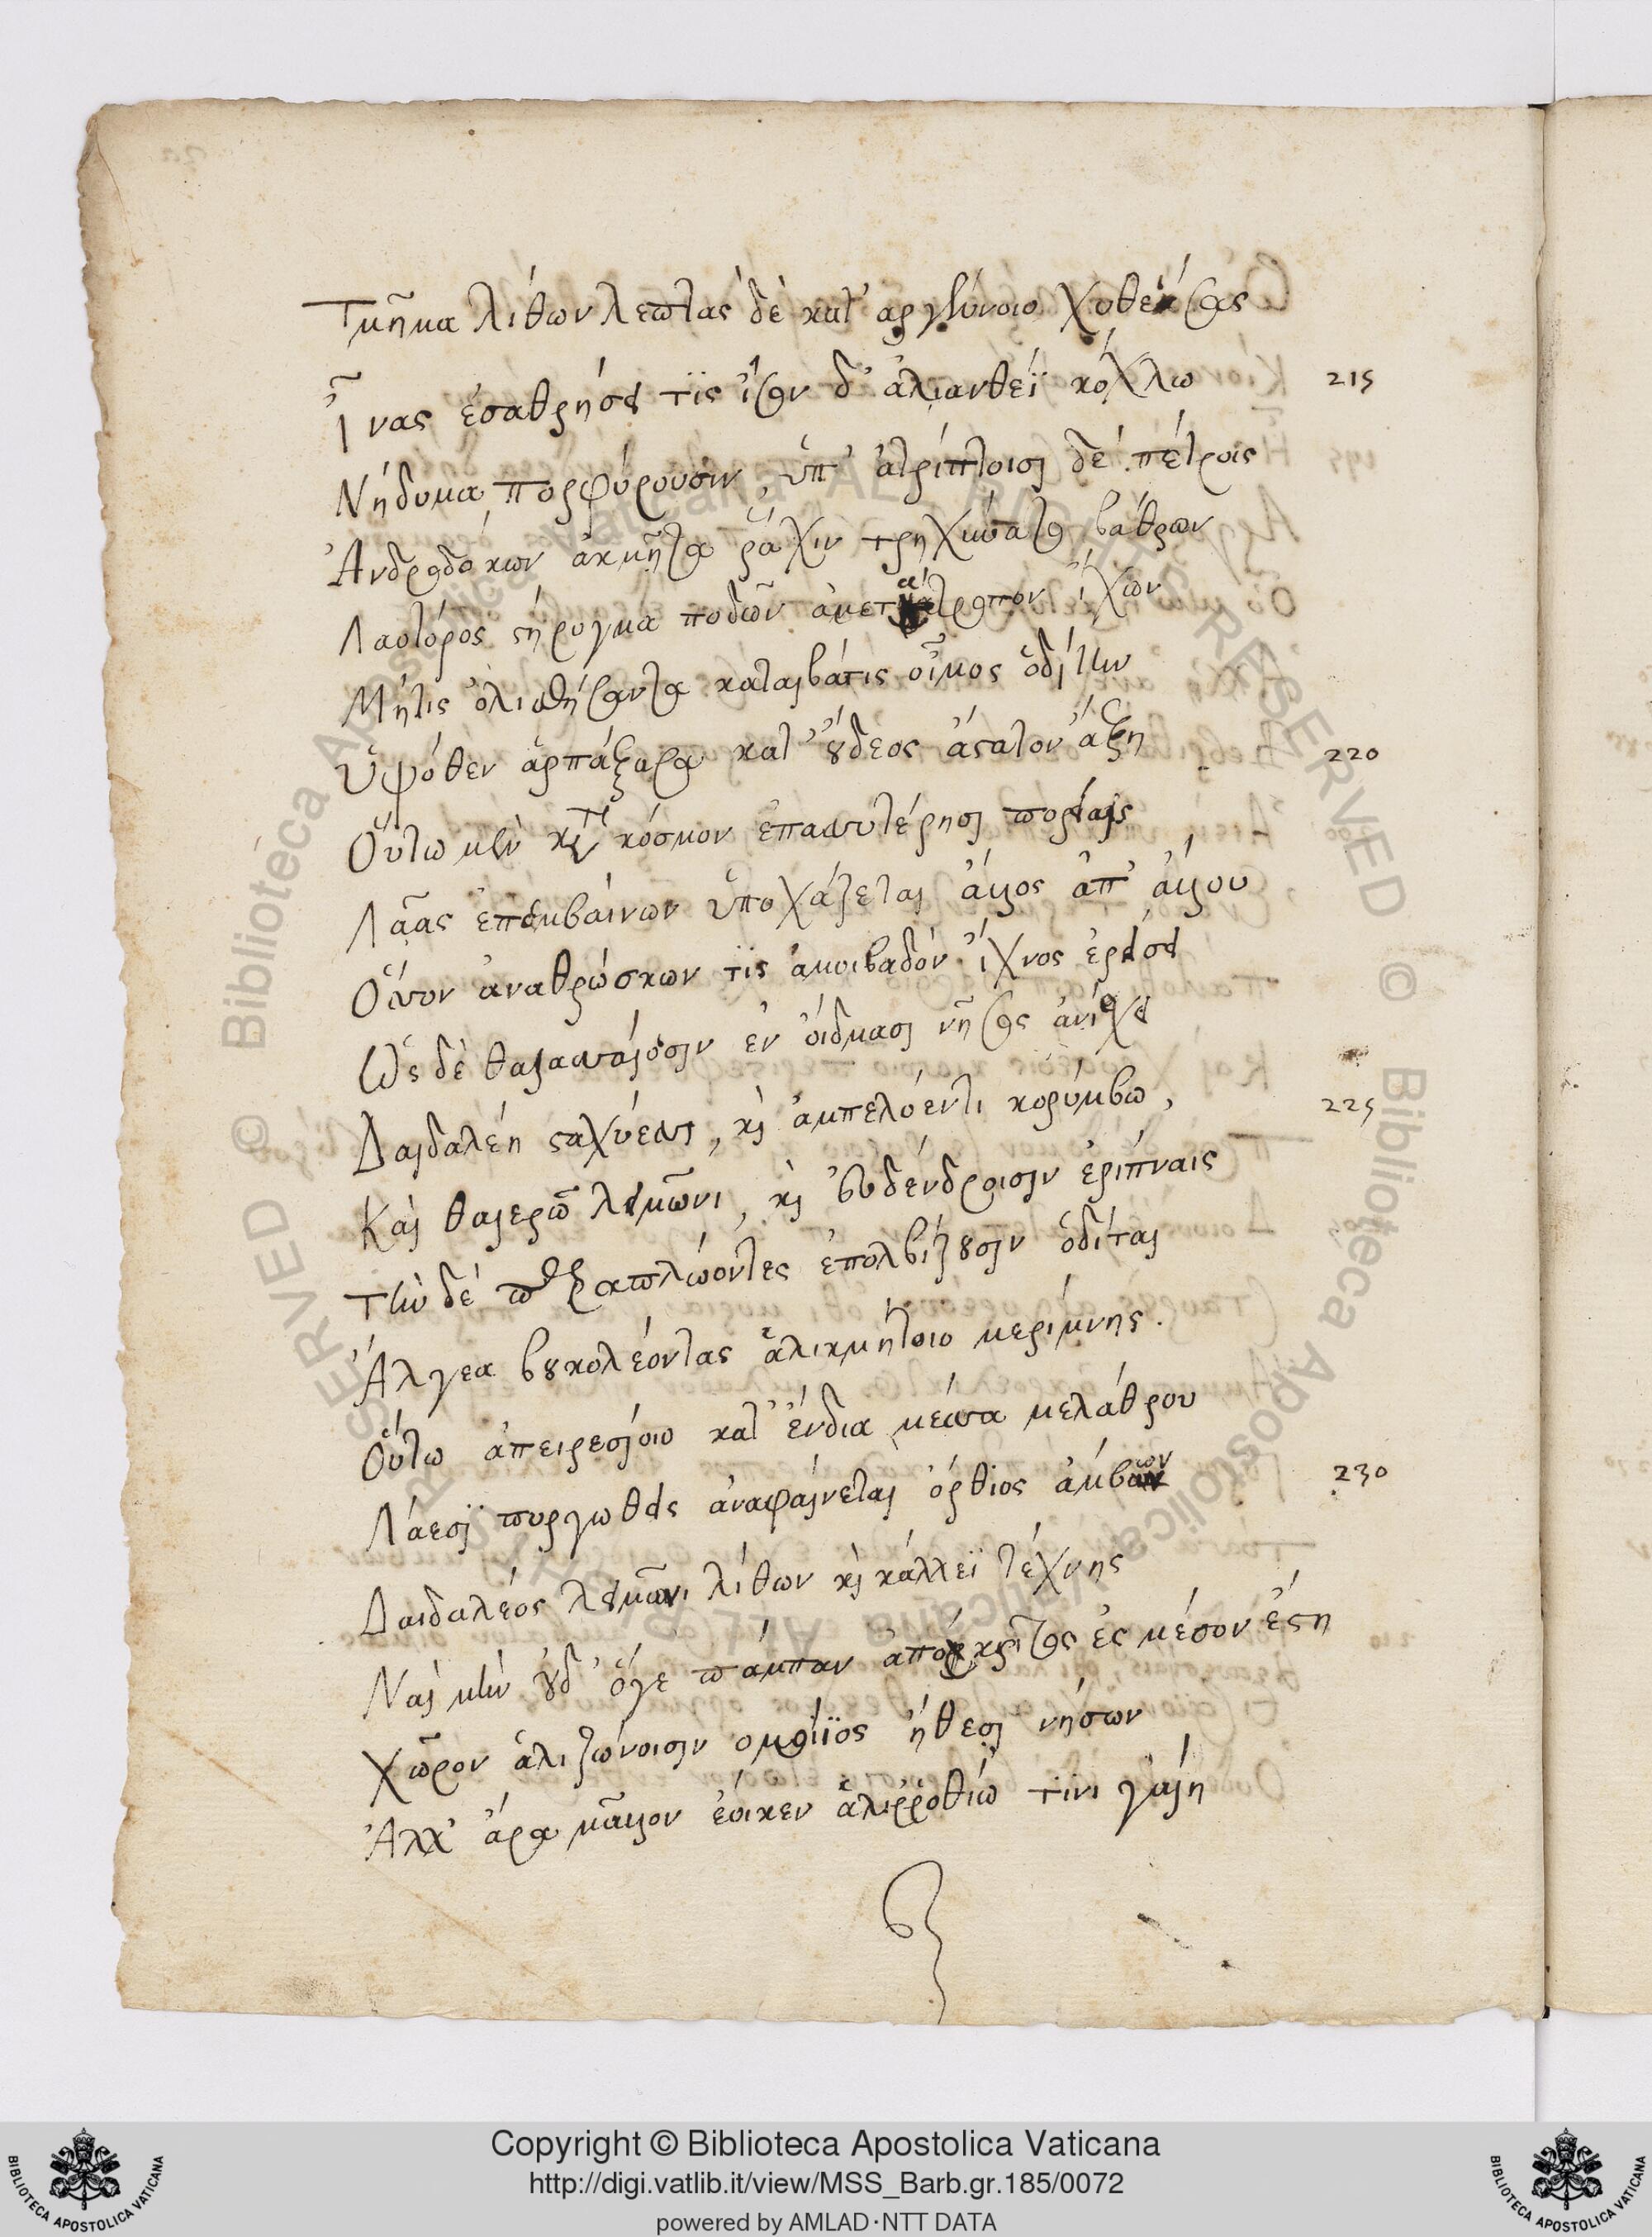 Τμῆμα λίθων λεπτὰς δὲ κατ' αργύνοιο χυθείσας
Ἶνας ἐσαθρήσει τὶς ἴσον δ' ἁλιανθέϊ κόχλω 215
Νήδυμα πορφύρουσιν, ὑπ' ἀτρίπτοισι δὲ πέτροις
Ἀνδροδόκων ἀκμῆτα ῥάχιν τρηχύνατο βάθρων
Λαοτόρος στήρυγμα ποδῶν ἀμετάτροπον ἴχων
Μήτις ὀλισθήσαντα καταιβάτις οἶμος ὁδίτην
Ὑψόθεν ἁρπάξασα κατ' οὔδεος ἄστατον ἄξη 220
Οὕτω μὲν καὶ κόσμον ἐπασσυτέρησι πορείαις
Λᾶας ἐπεμβαίνων ὑποχάζεται ἄλλος ἀπ' ἄλλου
Οἷσσον ἀναθρώσκων τὶς ἀμοιβαδὸν ἴχνος ἐρείσει
Ὡς δὲ θαλασσαίοισιν ἐν οἴδμασι νῆσος ἀνίσχει
Δαιδαλέη σταχύεσσι, καὶ ἀμπελόεντι κορύμβω, 225
Καὶ θαλερῶ λειμῶνι, καὶ εὐδένδροισιν ἐρίπναις
Τὴν δὲ παραπλώοντες ἐπολβίζουσιν ὁδίται
Ἄλγεα βουκολέοντας ἁλικμήτοιο μερίμνης.
Οὕτω ἀπειρεσίοιο κατ' ἔνδια μέσσα μελάθρου
Λάεσϊ πυργωθεὶς ἀναφαίνεται ὄρθιος ἄμβων 230
Δαιδαλέος λειμῶνι λίθων καὶ κάλλεϊ τέχνης
Ναὶ μὴν οὐδ' ὅγε πάμπαν ἀπόκριτος ἐς μέσον ἔστη
Χῶρον ἁλιζώνοισιν ομοίϊος ἤθεσι νήσων
Ἀλλ' ἄρα μᾶλλον ἔοικεν ἁλιῤῥοθίω τινι γαίη
Copyright © Biblioteca Apostolica Vaticana
http://digi.vatlib.it/view/MSS_Barb.gr.185/0072
powered by AMLAD·NTT DATA